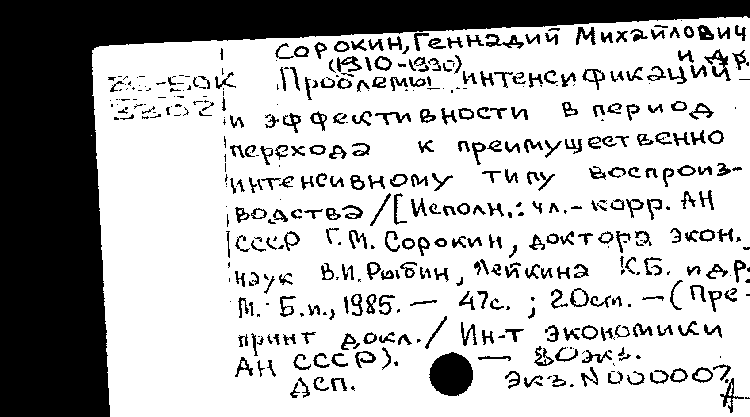 Сорокин, Геннадий Михайлович
(1910-1990) и др.
Проблемы интенсификации
и эффективности в период
перехода к преимущественно
интенсивному типу воспроиз-
водства / [Исполн.: чл.- корр. АН
СССР Г.М. Сорокин, доктора экон.
наук В.И. Рыбин, Лейкина К.Б. и др.
М.: Б.и., 1985. — 47с. ; 20см. — (Пре-
принт докл. / Ин-т экономики
АН СССР). — 80экз.
ДСП. Экз. N 000007